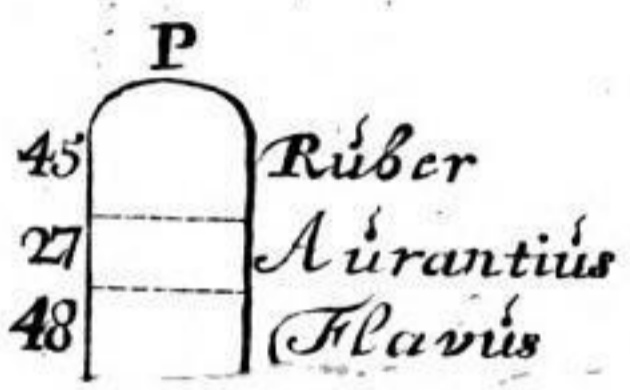 P
45 Rúber
27 Aúrantiús
48 Flavús